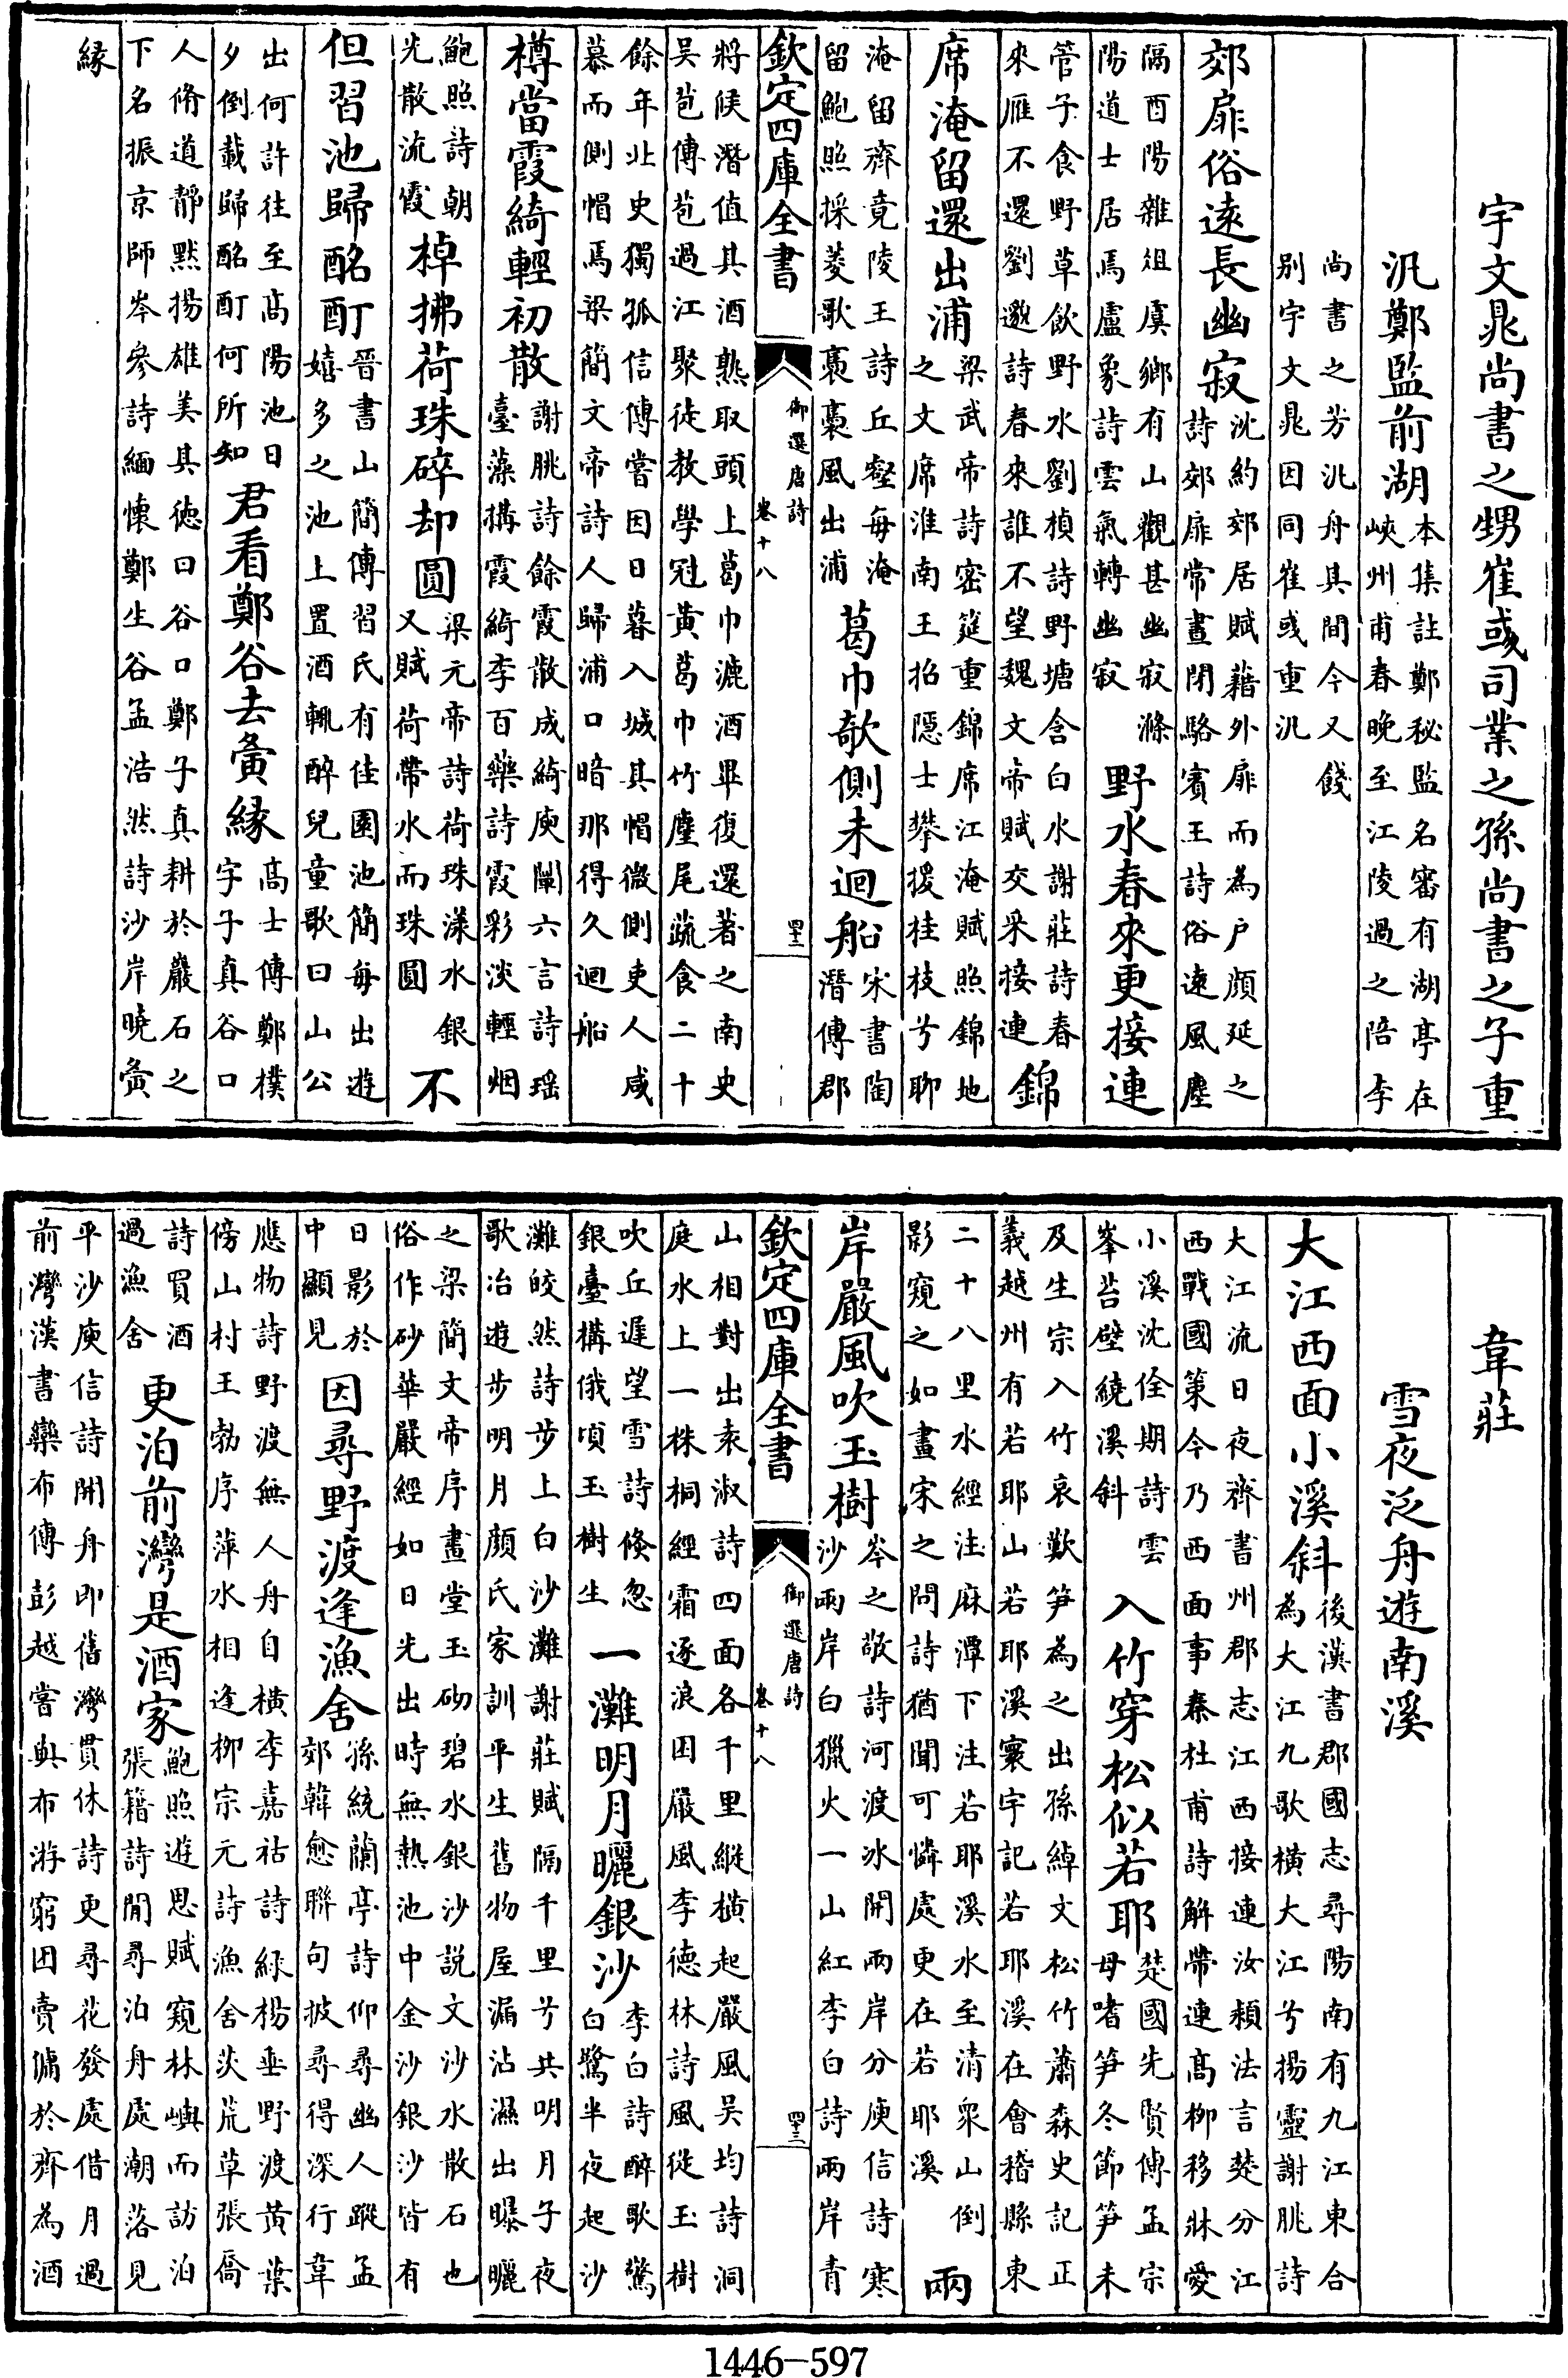 宇文晁尚書之甥崔彧司業之孫尚書之子重
汎鄭監前湖
本集註鄭秘監名審有湖亭在
峽州甫春晚至江陵過之陪李
尚書之芳汎舟其間今又餞
别宇文晁因同崔彧重汎
郊扉俗遠長幽寂
沈約郊居賦藉外扉而為户顔延之
詩郊扉常晝閉駱賓王詩俗遠風塵
隔酉陽雜俎虞鄉有山觀甚幽寂滌
陽道士居焉盧象詩雲氣轉幽寂
野水春來更接連
管子食野草飲野水劉楨詩野塘含白水謝莊詩春
來雁不還劉邈詩春來誰不望魏文帝賦交采接連
錦
席淹留還出浦
梁武帝詩密筵重錦席江淹賦照錦地
之文席淮南王招隱士攀援桂枝兮聊
淹留齊竟陵王詩丘壑每淹
留鮑照採菱歌裛裛風出浦
葛巾欹側未迴船
宋書陶
潛傳郡
欽定四庫全書
御選唐詩
卷十八
四十二
將候潛值其酒熟取頭上葛巾漉酒畢復還著之南史
吴苞傳苞過江聚徒教學冠黄葛巾竹麈尾蔬食二十
餘年北史獨孤信傳嘗因日暮入城其帽微側吏人咸
慕而側帽焉梁簡文帝詩人歸浦口暗那得久迴船
樽當霞綺輕初散
謝朓詩餘霞散成綺庾闡六言詩瑶
臺藻構霞綺李百藥詩霞彩淡輕烟
鮑照詩朝
光散流霞
棹拂荷珠碎却圓
梁元帝詩荷珠漾水銀
又賦荷帶水而珠圓
不
但習池歸酩酊
晉書山簡傳習氏有佳園池簡每出遊
嬉多之池上置酒輒醉兒童歌曰山公
出何許往至高陽池日
夕倒載歸酩酊何所知
君看鄭谷去夤緣
高士傳鄭樸
字子真谷口
人脩道靜默揚雄美其德曰谷口鄭子真耕於巖石之
下名振京師岑參詩緬懷鄭生谷孟浩然詩沙岸曉夤
緣
韋莊
雪夜泛舟遊南溪
大江西面小溪斜
後漢書郡國志尋陽南有九江東合
為大江九歌横大江兮揚靈謝朓詩
大江流日夜齊書州郡志江西接連汝潁法言楚分江
西戰國策今乃西面事秦杜甫詩解帶連高柳移牀愛
小溪沈佺期詩雲
峯苔壁繞溪斜
入竹穿松似若耶
楚國先賢傳孟宗
母嗜笋冬節笋未
及生宗入竹哀歎笋為之出孫綽文松竹蕭森史記正
義越州有若耶山若耶溪寰宇記若耶溪在會稽縣東
二十八里水經注麻潭下注若耶溪水至清衆山倒
影窺之如畫宋之問詩猶聞可憐處更在若耶溪
兩
岸嚴風吹玉樹
岑之敬詩河渡冰開兩岸分庾信詩寒
沙兩岸白獵火一山紅李白詩兩岸青
欽定四庫全書
御選唐詩
卷十八
四十三
山相對出袁淑詩四面各千里縱横起嚴風吴均詩洞
庭水上一株桐經霜逐浪困嚴風李德林詩風從玉樹
吹丘遲望雪詩倏忽
銀臺構俄頃玉樹生
一灘明月曬銀沙
李白詩醉歌驚
白鷺半夜起沙
灘皎然詩步上白沙灘謝莊賦隔千里兮共明月子夜
歌冶遊步明月顔氏家訓平生舊物屋漏沾濕出曝曬
之梁簡文帝序畫堂玉砌碧水銀沙説文沙水散石也
俗作砂華嚴經如日光出時無熱池中金沙銀沙皆有
日影於
中顯見
因尋野渡逢漁舍
孫統蘭亭詩仰尋幽人蹤孟
郊韓愈聯句披尋得深行韋
應物詩野渡無人舟自横李嘉祐詩緑楊垂野渡黄葉
傍山村王勃序萍水相逢柳宗元詩漁舍茨荒草張喬
詩買酒
過漁舍
更泊前灣是酒家
鮑照遊思賦窺林嶼而訪泊
張籍詩閒尋泊舟處潮落見
平沙庾信詩開舟即舊灣貫休詩更尋花發處借月過
前灣漢書欒布傳彭越嘗與布游窮困賣傭於齊為酒
1446-597